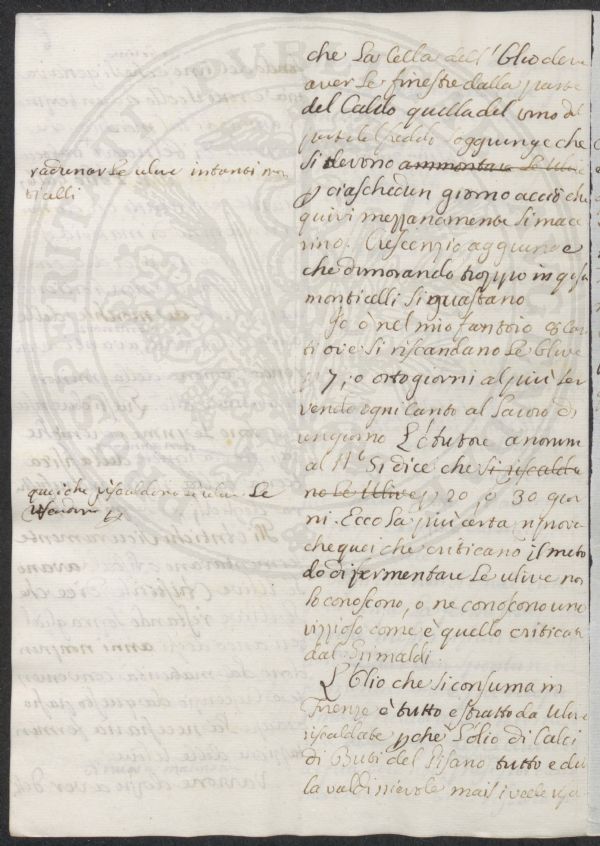 che la Cella dell'Olio deve
aver le finestre dalla parte
del Caldo quella del vino dal
freddo soggiunge che
si devono ammontare le Ulive
radunar le ulive intanti mon
ticelli
p ciaschedun giorno acciò che
quivi mezzanamente si mace
rino. Crescenzio aggiunge
che dimorando troppo in questi
monticelli si guastano
Io ò nel mio fantoio
ti ove si riscaldano le Ulive
p 7, o otto giorni al più ser
vendo ogni Canto al lavoro di
un giorno L'Autore anonimo
al N.º 5 dice che si riscalda
no le Ulive p 20, o 30 gior
quei che riscaldano le ulive le
ni. Ecco la più certa riprova
che quei che criticano il meto
do di fermentare le ulive non
lo conoscono, o ne conoscono uno
vizzioso come è quello criticato
dal Grimaldi.
L'Olio che si consuma in
Firenze è tutto estratto da Ulive
riscaldate pchè l'olio di Calci
di Buti del Pisano tutto e del
la valdinievole mai si vede